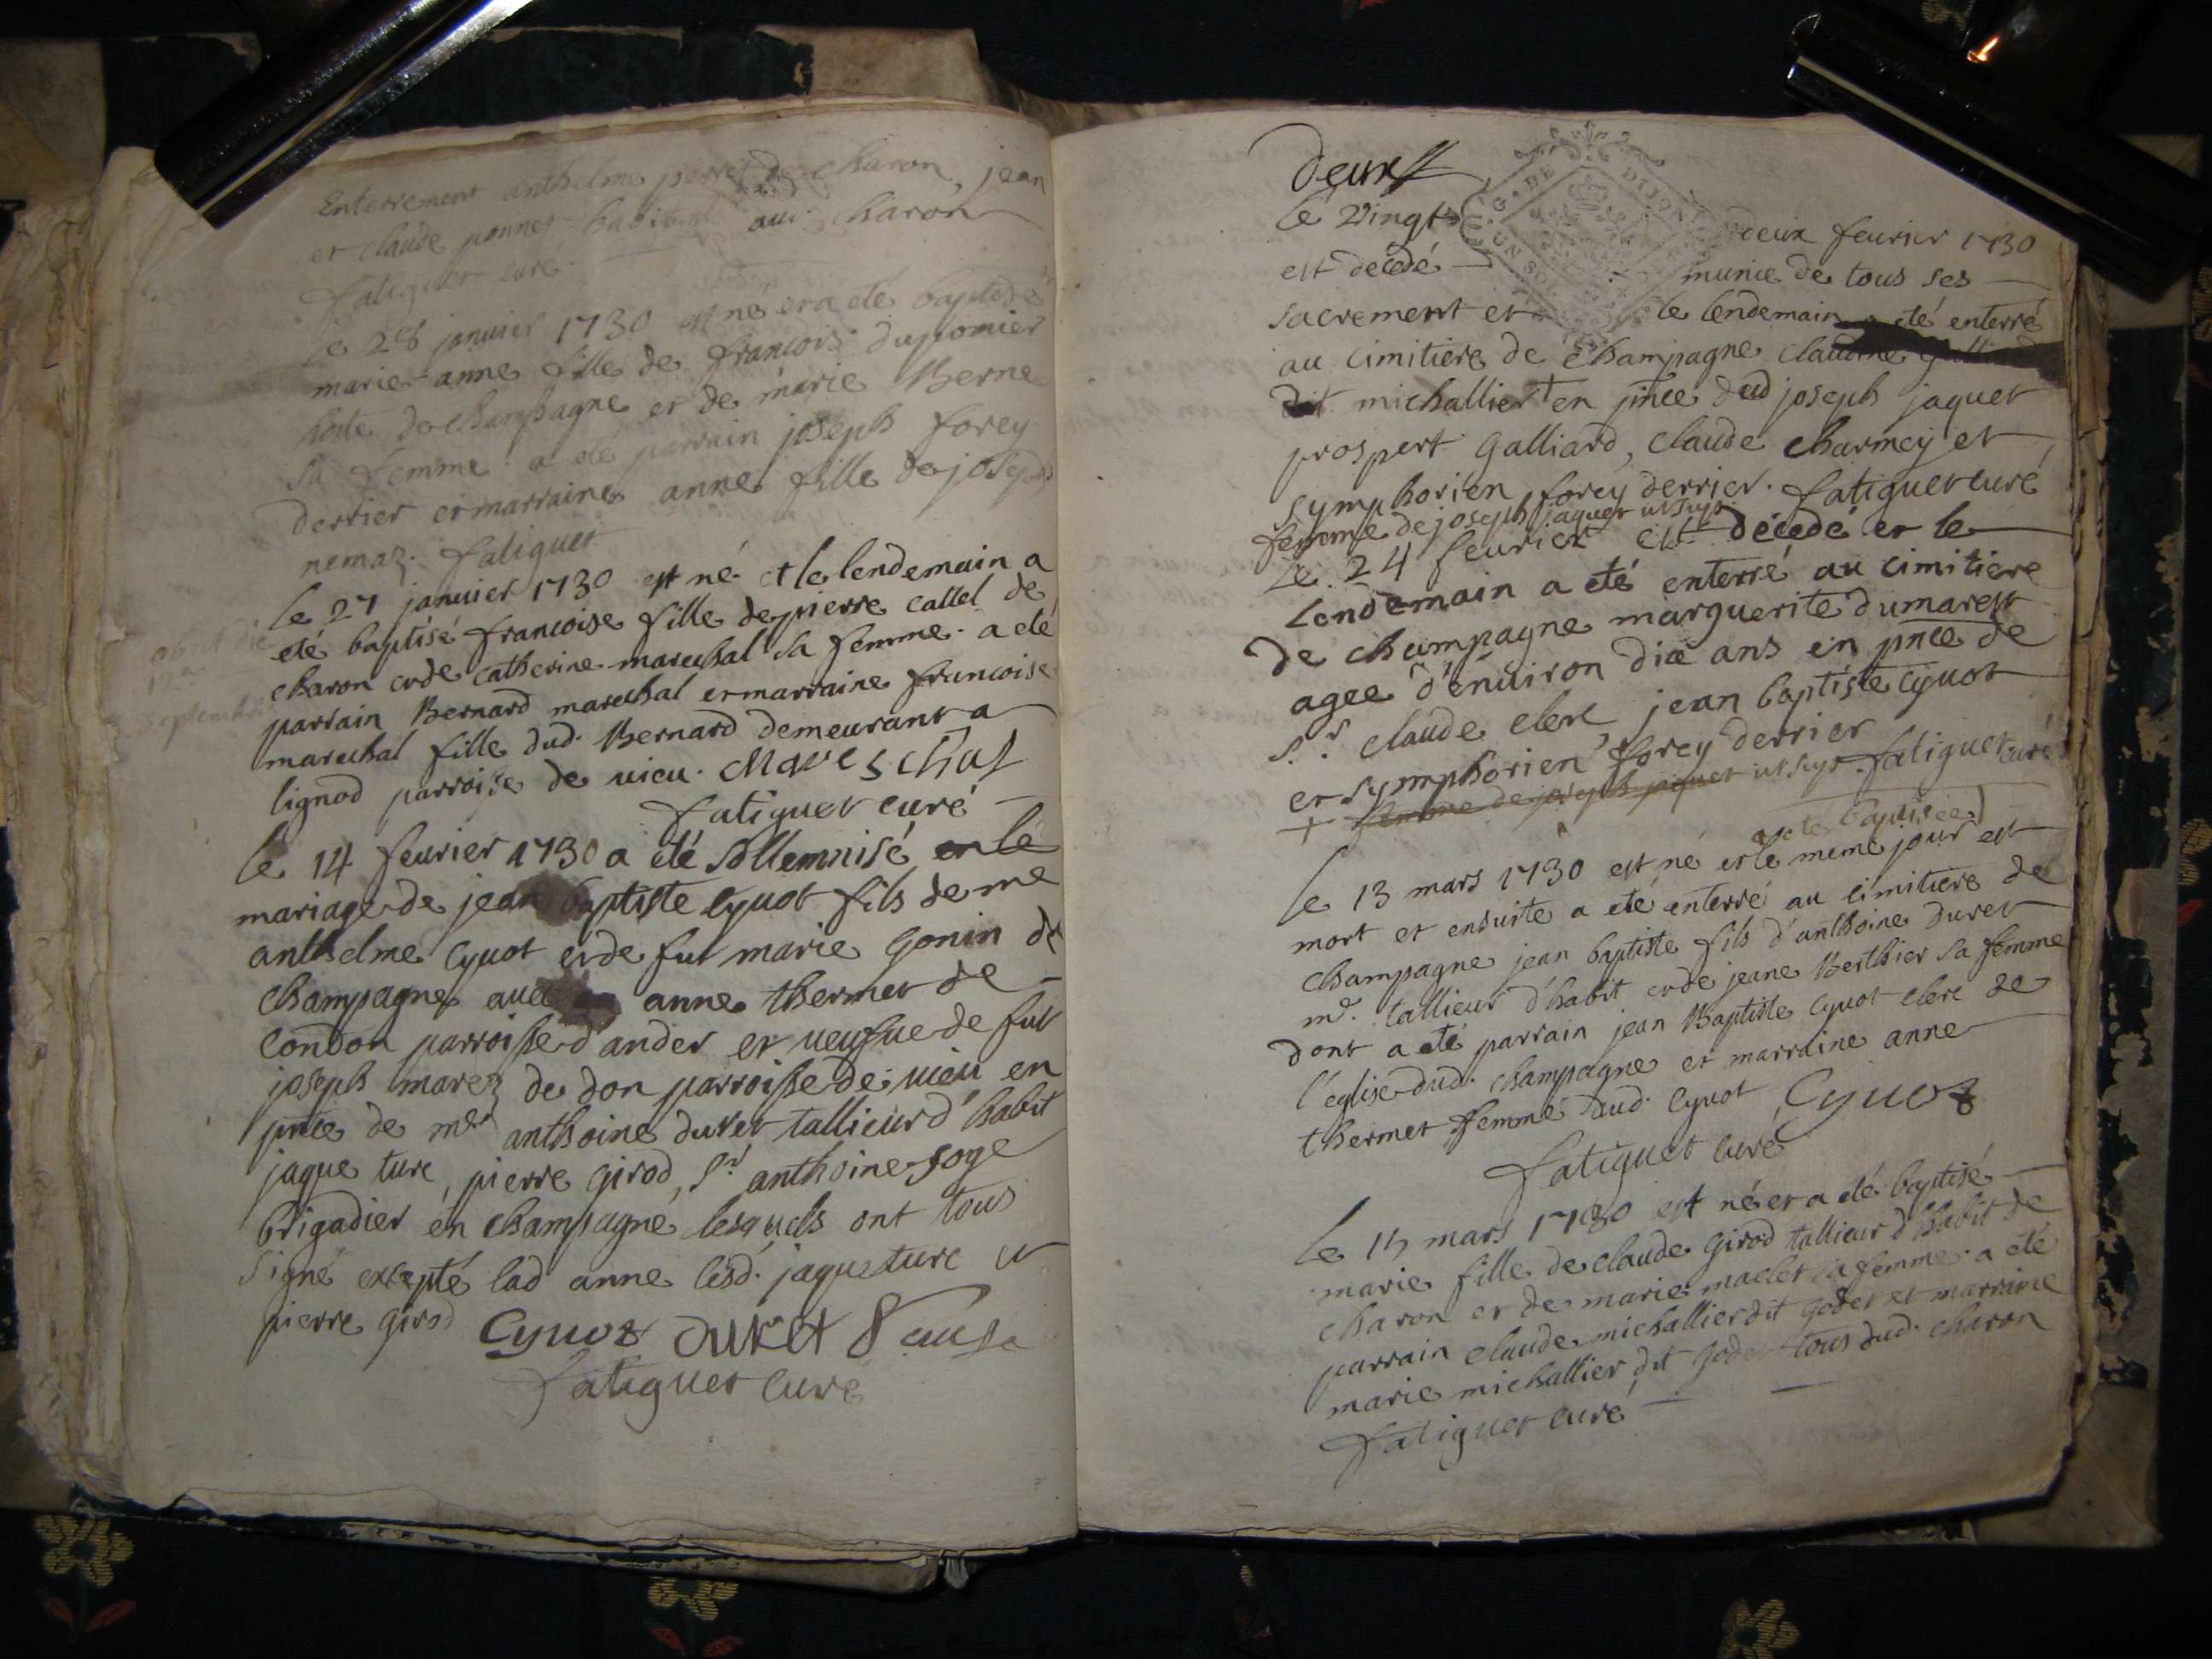 Enterrement anthelme perret de charon, jean
et claude ponnet habitants aud. charon
fatiguet curé.
le 28 janvier 1730 est né et a eté baptisé
marie-anne fille de francois dupomier
hoste de champagne et de marie Berne
sa femme. a eté parrain joseph forey
derrier et marraine anne fille de joseph
nemaz. fatiguet
le 27 janvier 1730 est né et le lendemain a
eté baptisé francoise fille de pierre callel de
charon et de catherine marechal sa femme. a eté
parrain Bernard marechal et marraine francoise
marechal fille dud. Bernard demeurant a
lignod parroisse de vieu. Mareschal
fatiguet curé
abiit die
17a
septembris
le 14 fevrier 1730 a eté sollemnisé en le
mariage de jean baptiste Cyuot fils de me
anthelme Cyuot et de fut marie Gonin de
champagne avec anne thermet de
condon parroisse d'ander et veufue de fut
joseph marez de don parroisse de vieu en
pnce de mer anthoine duret tallieur d'habit
jaque turc, pierre girod, Sr anthoine soge
brigadier en champagne lesquels ont tous
signé excepté lad anne lesd. jaque turc et
pierre girod Cyuot duret
fatiguet curé
deux
G. DE DIJON
UN SOL
le vingt deux fevrier 1730
est decedé munie de tous ses
sacrement et le lendemain a eté enterré
au cimitiere de champagne claudine
dit michallier + en pnce dud joseph jaquet
prospert Galliard, claude charmey et
symphorien forey derrier. fatiguet curé
femme de joseph jaquet ut sup.
le 24 fevrier est decedé et le
lendemain a eté enterré au cimitiere
de champagne marguerite dumarest
agee d'environ dix ans en pnce de
Sr claude clerc, jean baptiste Cyuot
et symphorien forey derrier
+ femme de joseph jaquet ut sup. fatiguet curé
a eté baptisée)
le 13 mars 1730 est né et le meme jour est
mort et ensuite a eté enterré au cimitiere de
champagne jean baptiste fils d'anthoine duret
mr. tallieur d'habit et de jeane Berthier sa femme
dont a eté parrain jean Baptiste Cyuot clerc de
l'eglise dud. champagne et marraine anne
thermet femme aud. Cyuot, Cyuot
fatiguet curé
le 15 mars 1730 est né et a eté baptisé
marie fille de claude Girod tallieur d'habit de
charon et de marie maclet sa femme. a eté
parrain claude michallier dit godet et marraine
marie michallier dit godet tous dud. charon
fatiguet curé